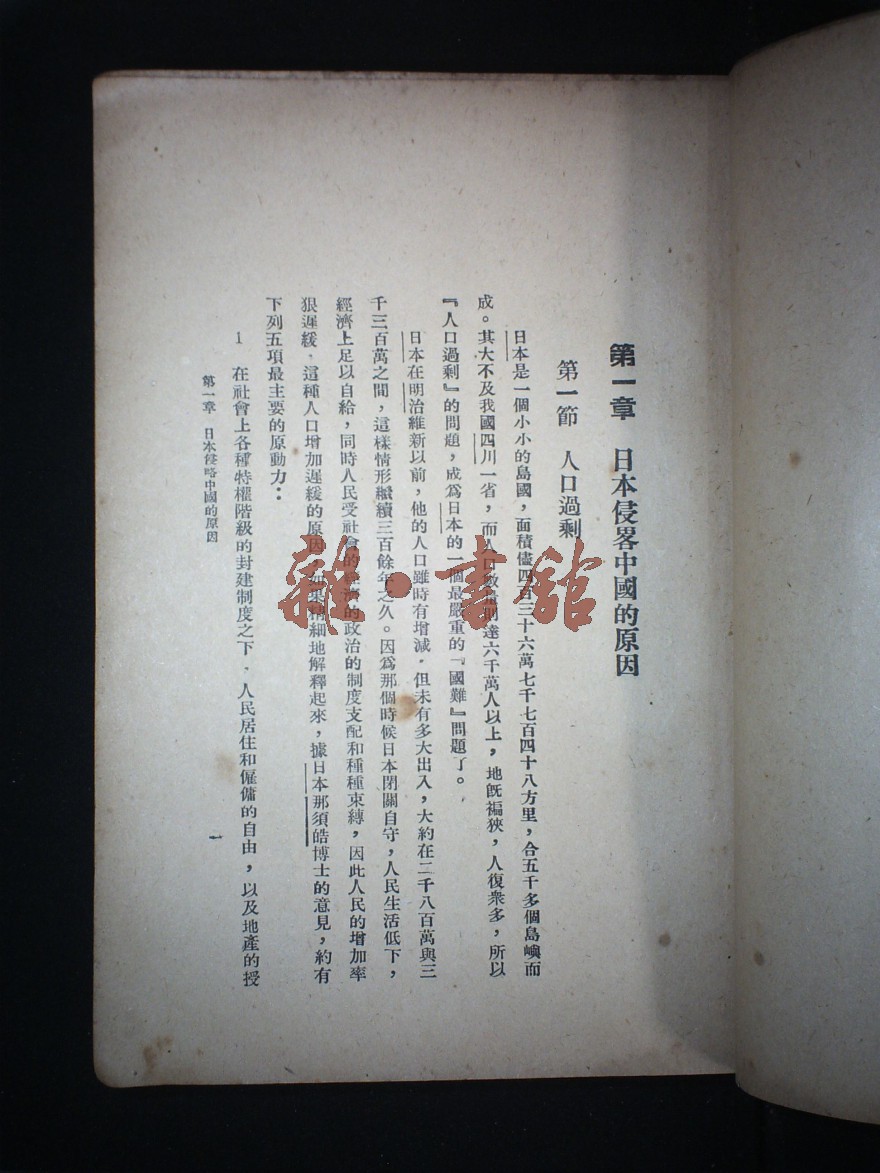 第一章　日本侵畧中國的原因
第一節　人口過剩
日本是一個小小的島國，面積儘四百三十六萬七千七百四十八方里，合五千多個島嶼而
成。其大不及我國四川一省，而人口數量則達六千萬人以上，地既褊狹，人復衆多，所以
『人口過剩』的問題，成爲日本的一個最嚴重的『國難』問題了。
日本在明治維新以前，他的人口雖時有增減，但未有多大出入，大約在二千八百萬與三
千三百萬之間，這樣情形繼續三百餘年之久。因爲那個時候日本閉關自守，人民生活低下，
經濟上足以自給，同時人民受社會的經濟的政治的制度支配和種種束縛，因此人民的增加率
狠遲緩，這種人口增加遲緩的原因，如果精細地解釋起來，據日本那須皓博士的意見，約有
下列五項最主要的原動力：
1　在社會上各種特權階級的封建制度之下，人民居住和僱傭的自由，以及地產的授
第一章　日本侵略中國的原因
一
雜·書館